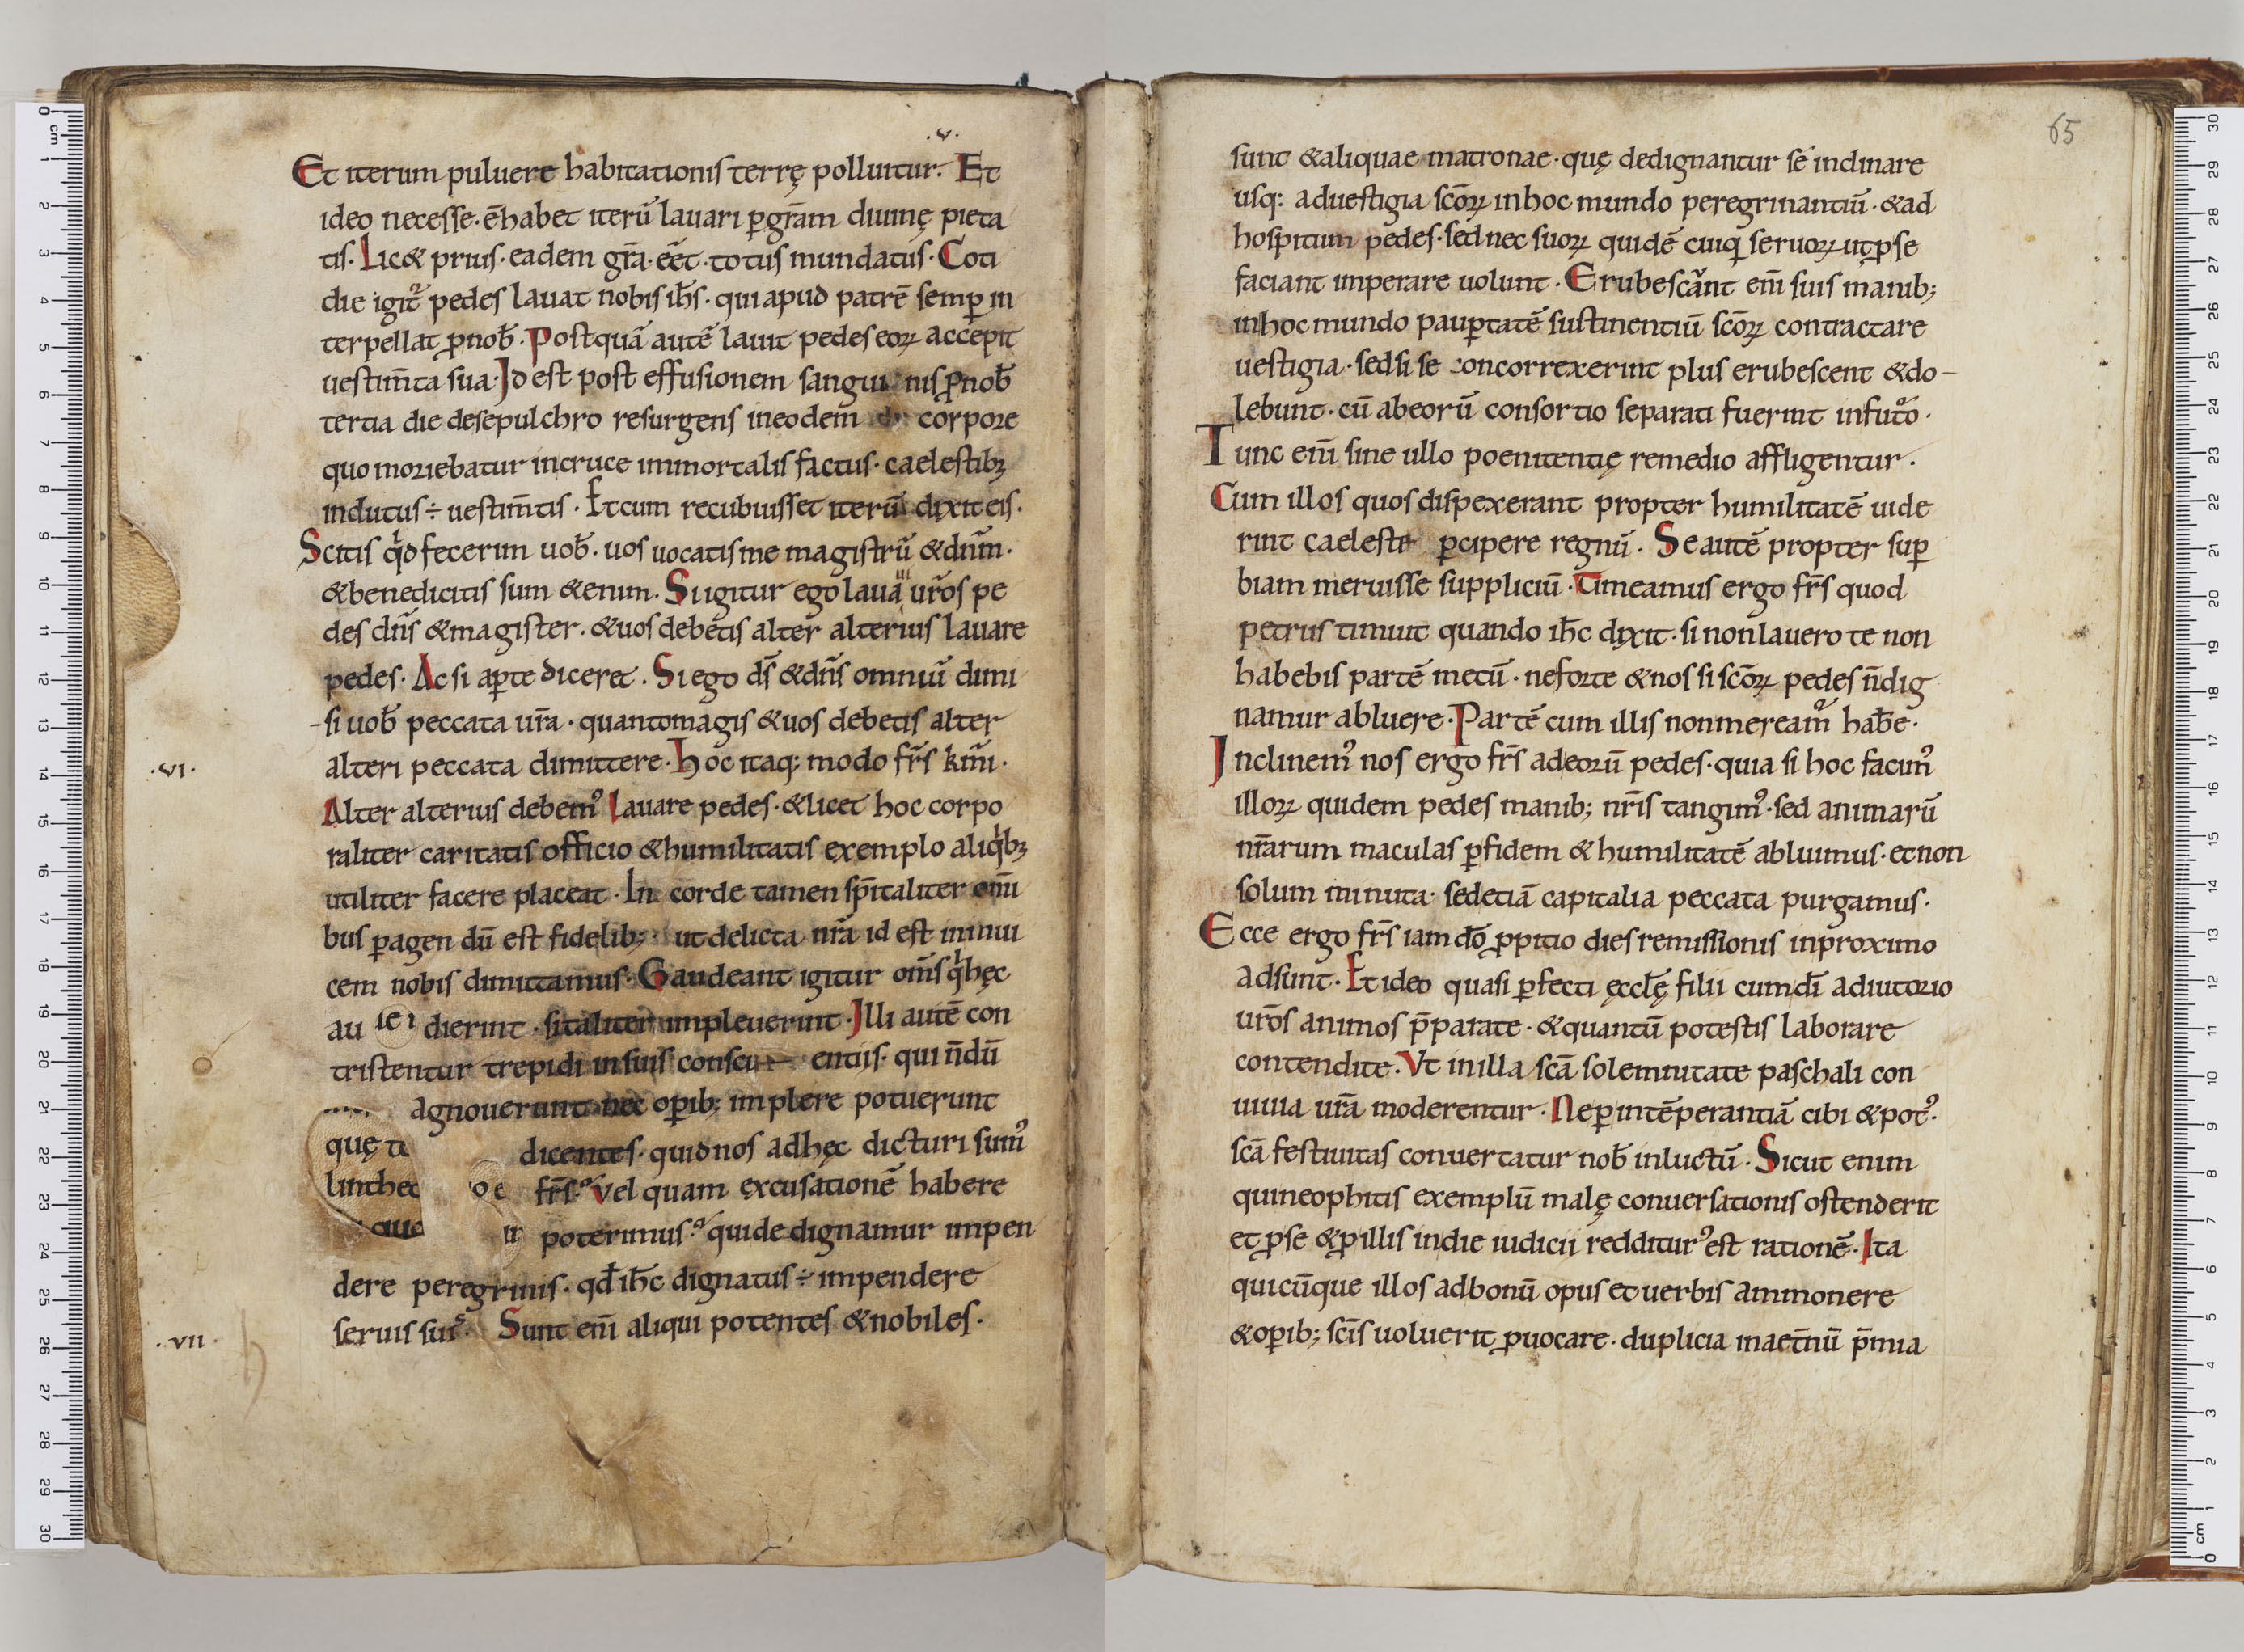 .v.
Et iterum puluere habitationis terrę polluitur. Et
ideo necesse. ē habet iterū lauari ꝑ gr̄am diuinę pieta
tis. Lic& prius. eadem gr̄a. eēt. totus mundatus. Coti
die igit᷑ pedes lauat nobis ih̄s. qui apud patrē semꝑ in
terpellat ꝓ nob̄. Postquā autē lauit pedes eoꝝ accepit
uestim̄ta sua. Id est post effusionem sangui nis ꝓ nob̄
tertia die de sepulchro resurgens in eodem corpore
quo moriebatur in cruce immortalis factus. caelestibꝫ
indutus ÷ uestim̄tis. Et cum recubuisset iterū dixit eis.
Scitis qͥd fecerim uob̄. uos uocatis me magistrū & dn̄m.
& benedicitis sum &enim. Si igitur ego laua ur̄os pe
des dn̄s & magister. & uos debetis alter alterius lauare
pedes. Ac si aꝑte diceret. Si ego ds̄ & dn̄s omniū dimi
-si uob̄ peccata ur̄a. quanto magis & uos debetis alter
alteri peccata dimittere. Hoc itaq; modo fr̄s km̄i.
.vi.
Alter alterius debem᷒ lauare pedes. & licet hoc corpo
raliter caritatis officio & humilitatis exemplo aliqͥbꝫ
utiliter facere placeat. In corde tamen sp̄italiter om̄i
bus ꝑagen dū est fidelib; ut delicta nr̄a id est in inui
cem nobis dimittamus. Gaudeant igitur om̄s qͥ hęc
au dierint. sitaliter impleuerint. Illi autē con
tristentur trepidi in suis consci entiis. qui n̄dū
agnouerunt nec oꝑib; implere potuerunt
quę ti dicentes. quid nos ad hęc dicturi sum᷒
fr̄s. Vel quam excusationē habere
poterimus. qui dedignamur impen
dere peregrinis. qd̄ ih̄c dignatus ÷ impendere
seruis suis. Sunt eni̅ aliqui potentes & nobiles.
.vii.
65
sunt & aliquae matronae. quę dedignantur se inclinare
usq: ad uestigia sc̄oꝝ in hoc mundo peregrinantiū. & ad
hospitum pedes. sed nec suoꝝ quidē cuiq̨ seruoꝝ ut ꝑ se
faciant imperare uolunt. Erubescant eni̅ suis manib;
in hoc mundo pauꝑtatē sustinentiū sc̄oꝝ contractare
uestigia. sed si se concorrexerint plus erubescent & do-
lebunt. cū ab eorū consortio separati fuerint in futo.
Tunc eni̅ sine ullo poenitentię remedio affligentur.
Cum illos quos dispexerant propter humilitatē uide
rint caeleste ꝑcipere regnū. Se autē propter suꝑ
biam meruisse suppliciū. Timeamus ergo fr̄s quod
petrus timuit quando ih̄c dixit. si non lauero te non
habebis partē mecū. ne forte & nos si sc̄oꝝ pedes n̄ dig
namur abluere. Partē cum illis non mereamͣ hab̄e.
Inclinem᷒ nos ergo fr̄s ad eorū pedes. quia si hoc facim᷒
illoꝝ quidem pedes manib; nr̄is tangim᷒. sed animarū
nr̄arum maculas ꝑ fidem & humilitatē abluimus. et non
solum minuta. sed etiā capitalia peccata purgamus.
Ecce ergo fr̄s iam dō ꝓpitio dies remissionis in proximo
adsunt. Et ideo quasi ꝑfecti ęccl̄ę filii cum dī adiutorio
ur̄os animos p̄parate. & quantū potestis laborare
contendite. Vt in illa sc̄a solemnitate paschali con
uiuia ur̄a moderentur. Ne ꝑ intēperantiā cibi & pot᷒.
sc̄a festiuitas conuertatur nob̄ in luctū. Sicut enim
qui neophitis exemplū malę conuersationis ostenderit
et ꝓ se & ꝓ illis in die iudicii redditur᷒ est rationē. Ita
quicūque illos ad bonū opus et uerbis ammonere
& oꝑib; sc̄is uoluerit ꝓuocare. duplicia in aet̄nū p̄mia